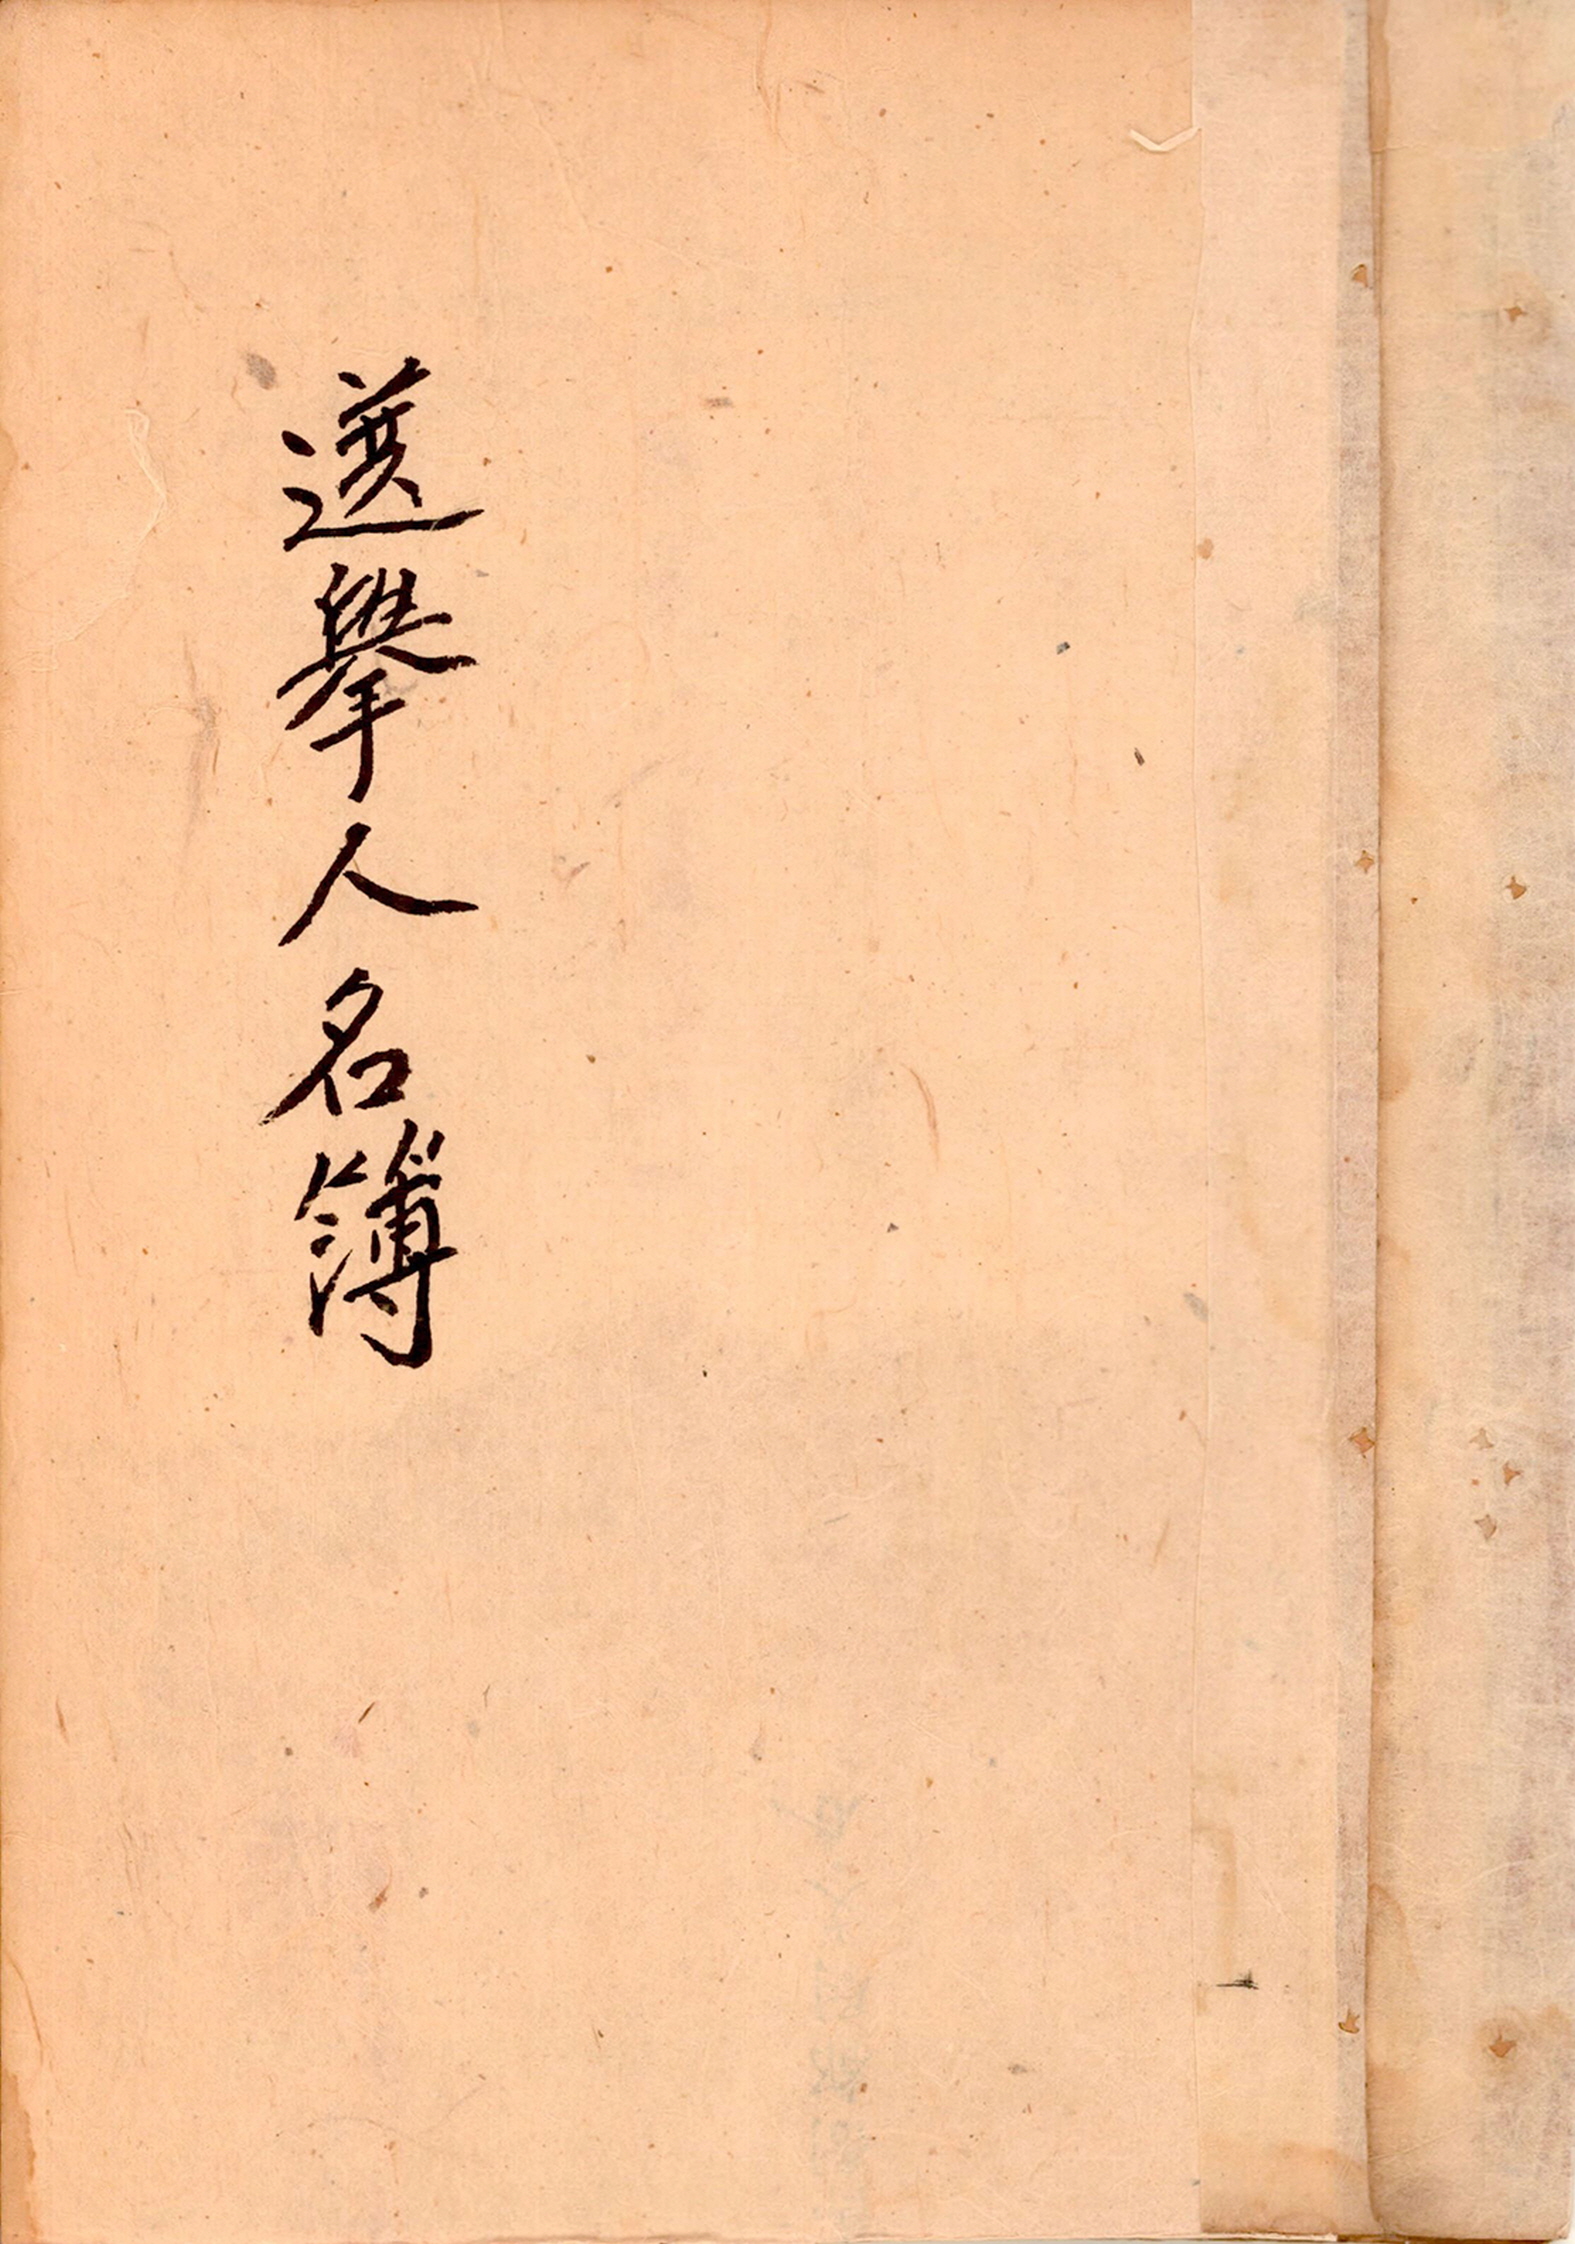 選擧人名簿